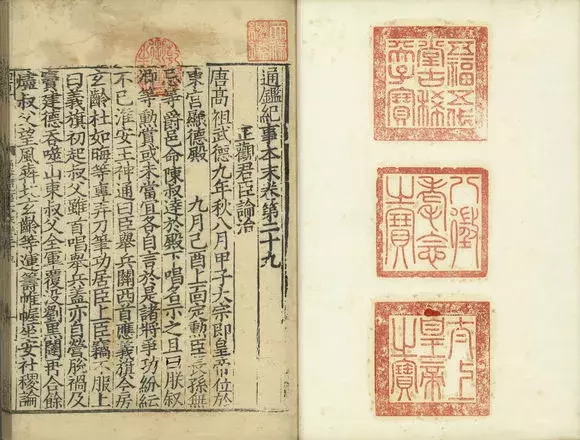 通鑑紀事本末卷第二十九
正觀君臣論治
唐髙祖武德九年秋八月甲子太宗即皇帝位於
東宮顯德殿　九月己酉上面定勳臣長孫無
忌等爵邑命陳叔達於殿下唱名示之且曰朕叙
卿等勳賞或未當宜各自言於是諸將爭功紛紜
不已淮安王神通曰臣舉兵關西首應義旗今房
玄齡杜如晦等專弄刀筆功居臣上臣竊不服上
曰義旗初起叔父雖首唱舉兵蓋亦自營脫禍及
竇建德吞噬山東叔父全軍覆没劉黑闥再合餘
燼叔父望風奔北玄齡等運籌帷幄坐安社稷論
五福五代
堂古稀
天子寶
八徵
耄念
之寶
太上
皇帝
之寶